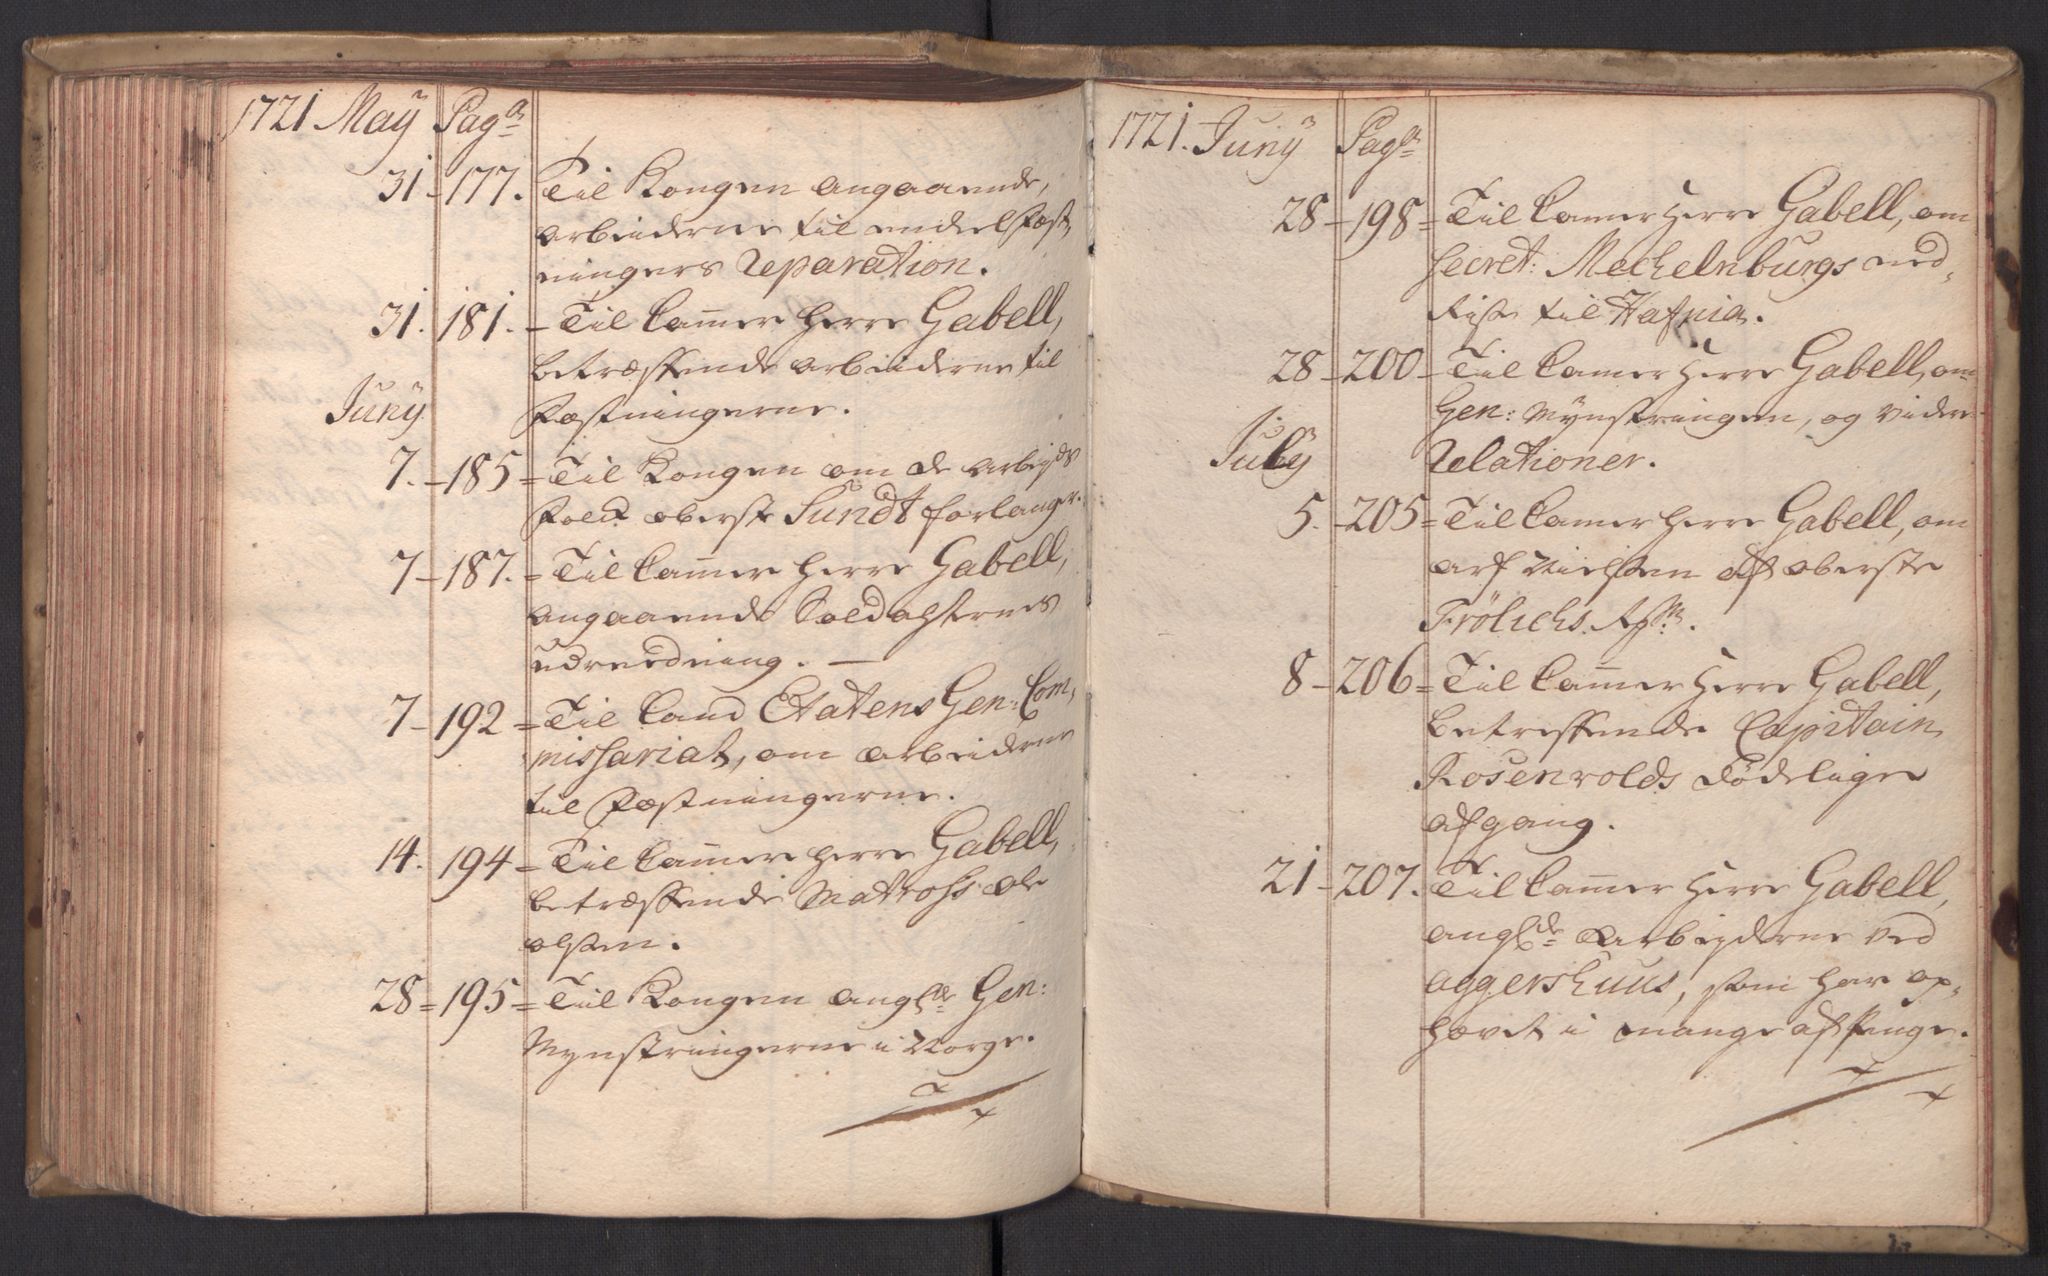 1721 May Pag:
31 - 177. Til Kongen angaaende,
arbeiderne til endeel Fæst,
ningers Reparation.
31. 181. - Til Cammer Herre Gabell,
betræffende arbeiderne til
Fæstningerne.
Juny
7. - 185 = Til Kongen om de arbejds
Folck oberste Sundt forlanger.
7 - 187. = Til Cammer Herre Gabell,
angaaende Soldatternes
udreedning. —
7 - 192 = Til Land Etatens Gen: Com,
missariat, om arbeiderne
til Fæstningerne.
14. 194 = Til Cammer Herre Gabell,
betræffende Matross ole
olsen.
28 = 195 = Til Kongen angl:de Gen:
Mynstringerne i Norge.
1721. Juny Pag:
28 - 198 = Til Camer Herre Gabell, om
Secret: Mechelnburgs ned,
Reise til Hafnia.
28 - 200 - Til Camer Herre Gabell, om
Gen: Mynstringen, og videre
Relationer.
July
5. - 205 = Til Camer Herre Gabell, om
Nielsen af oberste
Frölichs. Rgm:.
8 - 206 = Til Cammer Herre Gabell,
betreffende Capitain
Rosenvolds dödelige
afgang.
21 - 207. Til Cammer Herre Gabell,
angl:de Arbejderne ved
aggershuus, som har op,
hævet i mange af Penge.